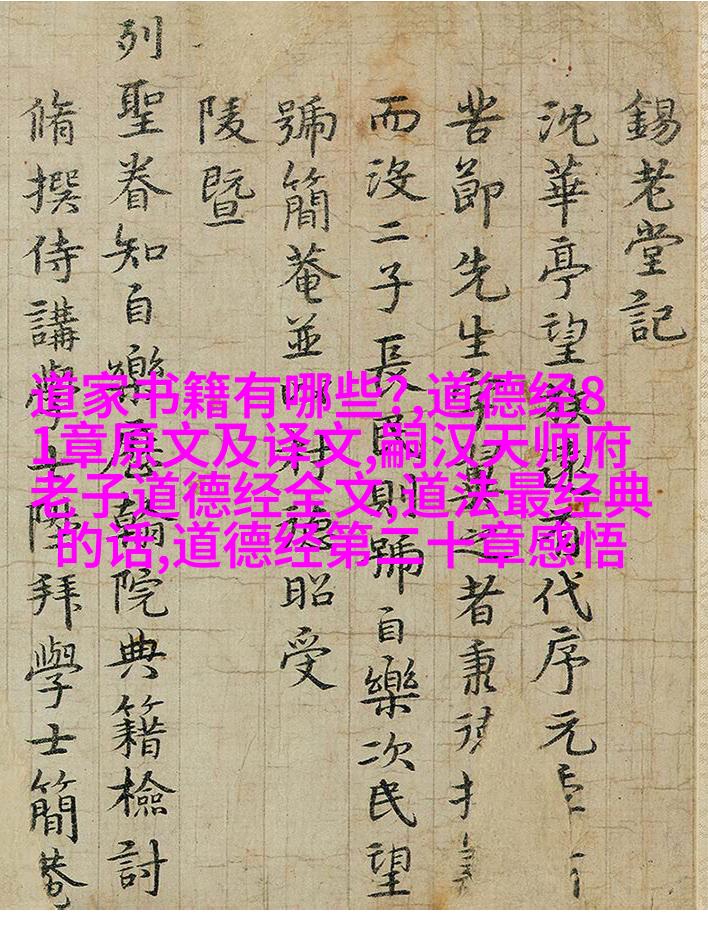 錫老堂記
沈華亭望族 代序元
苦節先生 之者秉
而沒二子長民則號自樂次民望
號簡菴並 昭受
陵暨
列聖眷知自樂歷翰院典籍檢討
脩撰侍講學士陞拜學士簡菴
道家书籍有哪些?,道德经8
1章原文及译文,嗣汉天师府
老子道德经全文,道法最经典
的话,道德经第二十章感悟